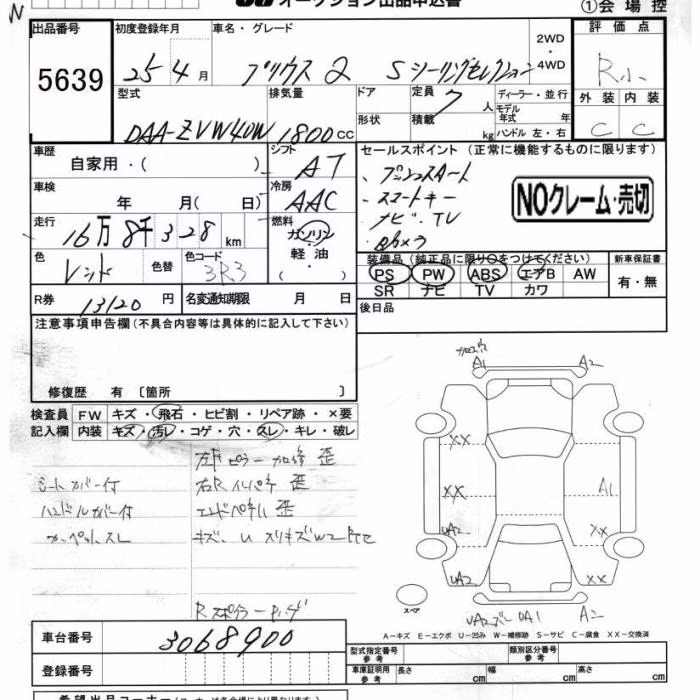 オークション出品申込書
①会場控
出品番号 5639
初度登録年月 25年4月
車名・グレード プリウス 2 Sツーリングセレクション
2WD・4WD
評価点 R小
外装 内装
C C
型式 DAA-ZVW40W
排気量 1800cc
ドア
形状
定員 7人
積載 kg
ディーラー・並行
モデル年式 年
ハンドル 左・右
車歴 自家用・( )
シフト AT
セールスポイント (正常に機能するものに限ります)
・プッシュスタート
・スマートキー
・ナビ・TV
・Bカメラ
NOクレーム・売切
車検 年 月(日)
冷房 AAC
走行 16万8千328km
燃料 ガソリン・軽油・( )
色 レッド
色替
色コード 3R3
装備品 (純正品に限り○をつけてください)
PS PW ABS エアB AW
SR ナビ TV カワ
新車保証書
有・無
R券 13120円
名変通知期限 月 日
後日品
注意事項申告欄(不具合内容等は具体的に記入して下さい)
修復歴 有 〔箇所 〕
検査員記入欄
FW キズ・飛石・ヒビ割・リペア跡・×要
内装 キズ・汚レ・コゲ・穴・スレ・キレ・破レ
シートカバー付
ハンドルカバー付
カーペットスレ
左Fピラー加修 歪
右Rインパネ 歪
エンドパネル 歪
A1 A2
XX
XX A1
UA2 XX
UA2 XX
UA1 A2
スペア
A-キズ E-エクボ U-凹み W-補修跡 S-サビ C-腐食 XX-交換済
車台番号 3068900
登録番号
型式指定番号 参考
類別区分番号 参考
車庫証明用 参考 長さ cm 幅 cm 高さ cm